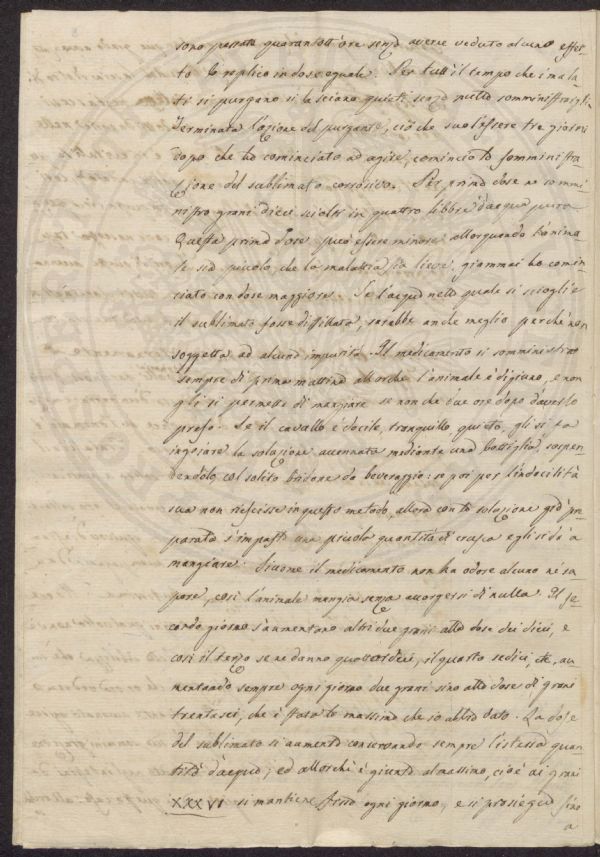 sono passate quarantott'ore senza averne veduto alcuno effet-
to lo replico in dose eguale. Per tutt'il tempo che i mala-
ti si purgano si lasciano quieti senza nulla somministrargli.
Terminata l'azione del purgante, ciò che suol'essere tre giorni
dopo che ha cominciato ad agire, comincio la somministra-
zione del sublimato corrosivo. Per prima dose ne sommi-
nistro grani dieci sciolti in quattro libbre d'acqua pura.
Questa prima dose può essere minore allorquando l'anima-
le sia piccolo, che la malattia sia lieve, giammai ho comin-
ciato con dose maggiore. Se l'acqua nella quale si scioglie
il sublimato fosse distillata, sarebbe anche meglio perchè non
soggetta ad alcuna impurità. Il medicamento si somministra
sempre di prima mattina allorchè l'animale è digiuno, e non
gli si permette di mangiare se non che due ore dopo d'averlo
preso. Se il cavallo è docile, tranquillo quieto, gli si fa
ingoiare la soluzione accennata mediante una bottiglia, sospen-
dendolo col solito bridone da beveraggio: se poi per l'indocilità
sua non riescisse in questo metodo, allora con la soluzione già pre-
parata s'impasta una piccola quantità di crusca e gli si dà a
mangiare. Siccome il medicamento non ha odore alcuno nè sa-
pore, così l'animale mangia senza accorgersi di nulla. Il se-
condo giorno s'aumentano altri due grani alla dose dei dieci, e
così il terzo se ne danno quattordici, il quarto sedici, etc, au-
mentando sempre ogni giorno due grani sino alla dose di grani
trentasei, che è stata la massima che io abbia dato. La dose
del sublimato si aumenta conservando sempre l'istessa quan-
tità d'acqua; ed allorchè è giunta al massimo, cioè ai grani
XXXVI si mantiene fermo ogni giorno, e si prosiegue sino
a